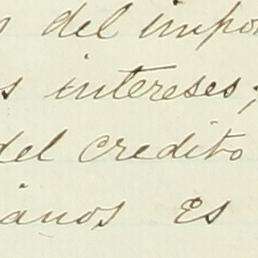 del impor
s intereses;
del credito
ianos es